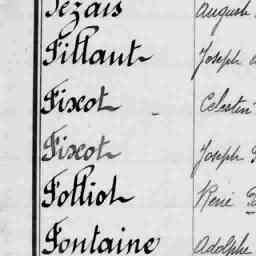 Fezais Auguste
Fillaut Joseph
Fixot Celestin
Fixot Joseph
Folliot René
Fontaine Adolphe